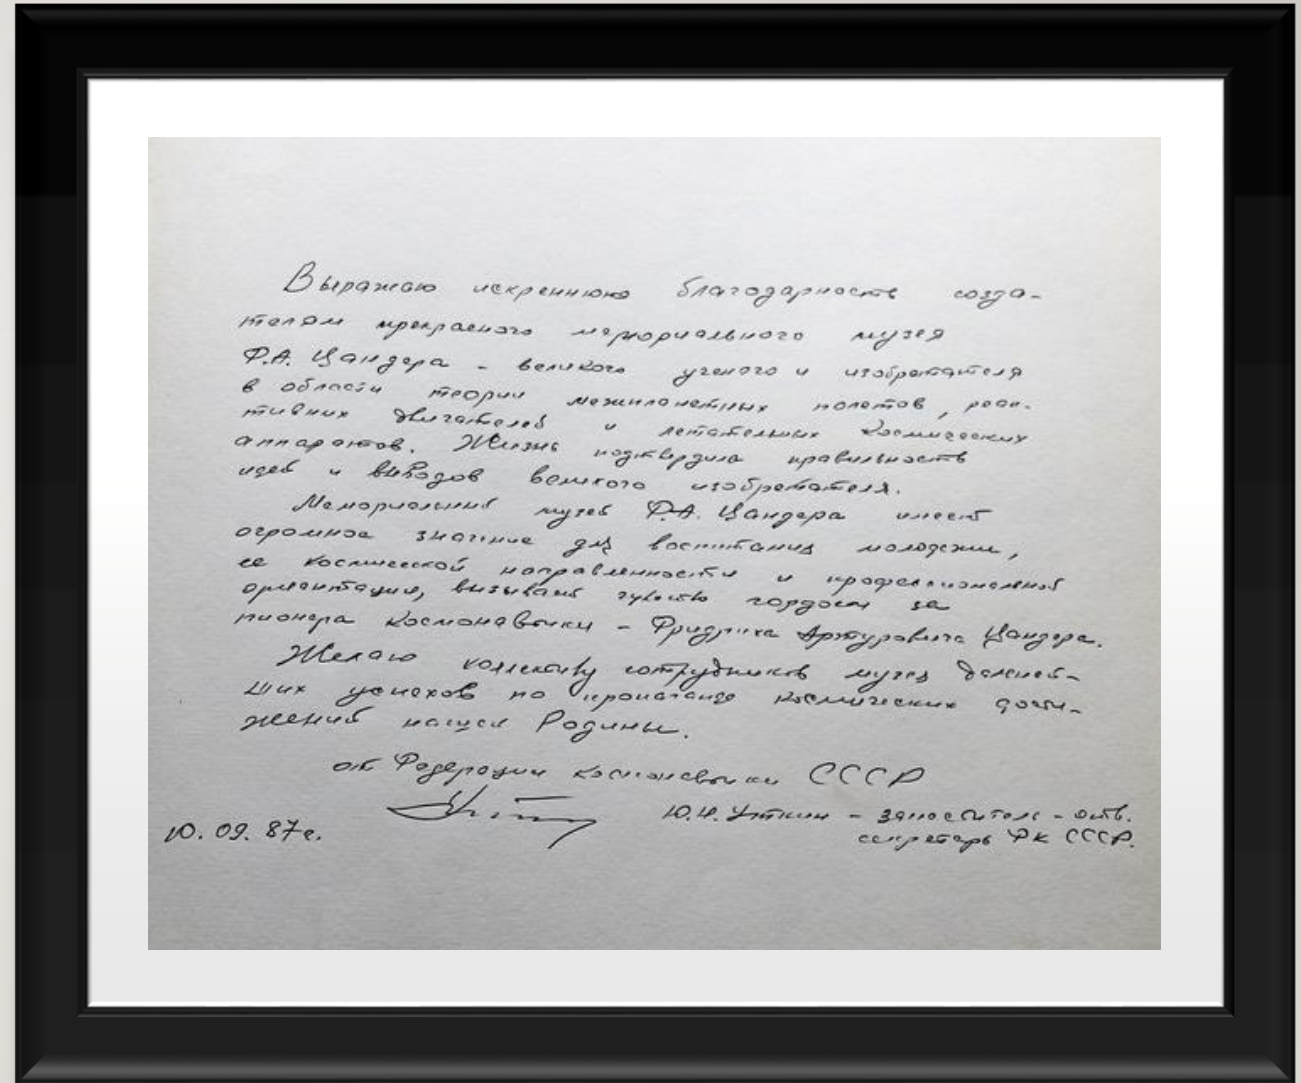 Выражаю искреннюю благодарность созда-
телям прекрасного мемориального музея
Ф.А. Цандера - великого ученого и изобретателя
в области теории межпланетных полетов, реак-
тивных двигателей и летательных космических
аппаратов. Жизнь подтвердила правильность
идей и выводов великого изобретателя.
Мемориальный музей Ф.А. Цандера имеет
огромное значение для воспитания молодежи,
ее космической направленности и профессиональной
ориентации, вызывает чувство гордости за
пионера космонавтики - Фридриха Артуровича Цандера.
Желаю коллективу сотрудников музея дальней-
ших успехов по пропаганде космических дости-
жений нашей Родины.
от Федерации космонавтики СССР
10.09.87г.
Уткин - заместитель - отв.
секретарь ФК СССР.